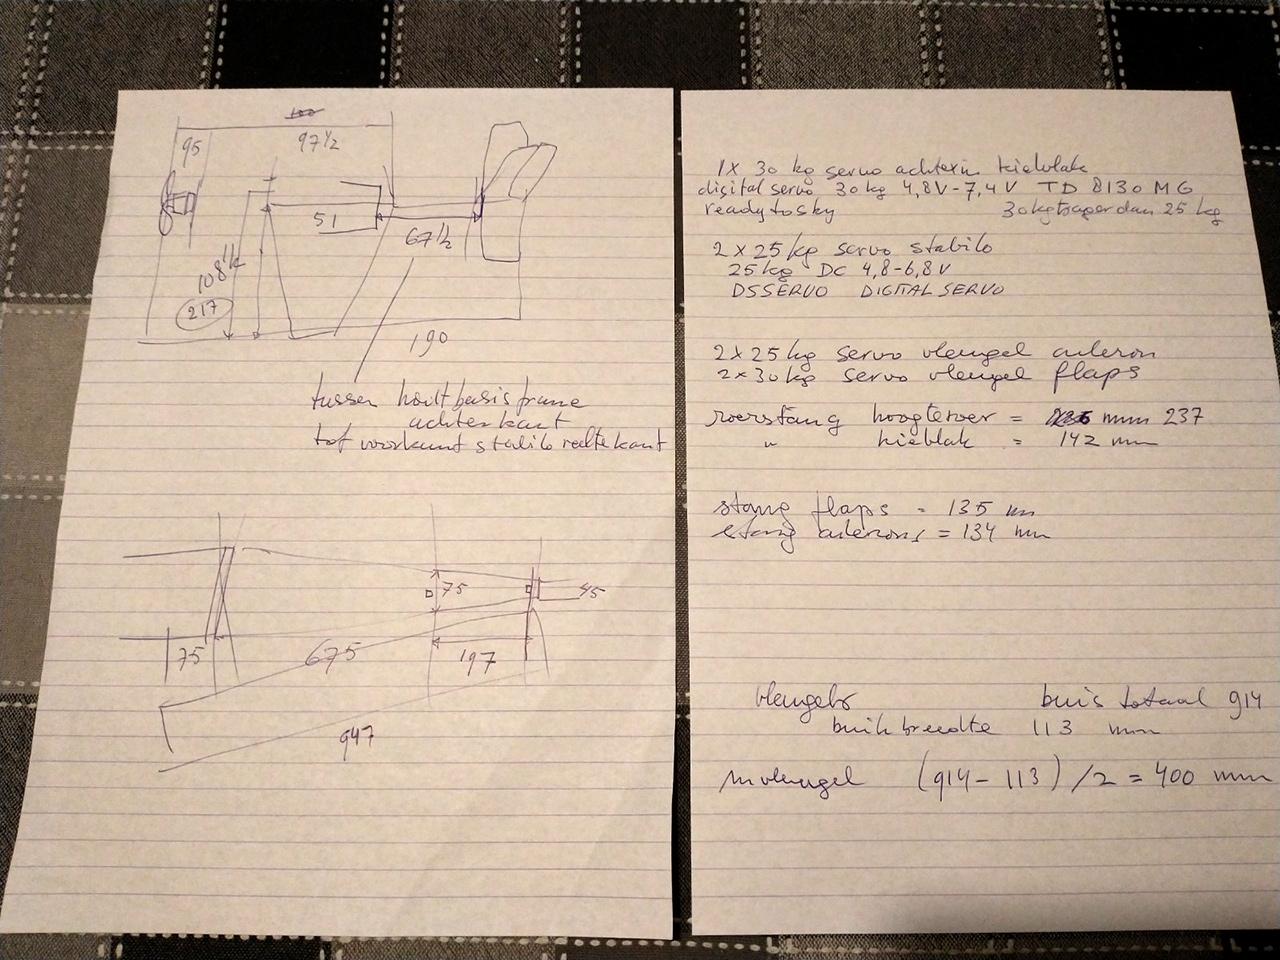 100
95
97½
51
67½
108½
217
190
tussen houtbasisframe
achterkant
tot voorkant stabilo rechte kant
75
45
75
675
197
947
1x 30 kg servo achterin kielvlak
digital servo 30kg 4,8V-7,4V TD 8130 MG
readytosky 30kg trager dan 25 kg
2 x 25 kg servo stabilo
25kg DC 4,8-6,8V
DSSERVO DIGITALSERVO
2x25kg servo vleugel aileron
2x30kg servo vleugel flaps
roerstang hoogteroer = mm 237
" kielvlak = 142 mm
stang flaps = 135 mm
stang ailerons = 134 mm
vleugels buis totaal 914
buikbreedte 113 mm
in vleugel (914-113)/2 = 400 mm